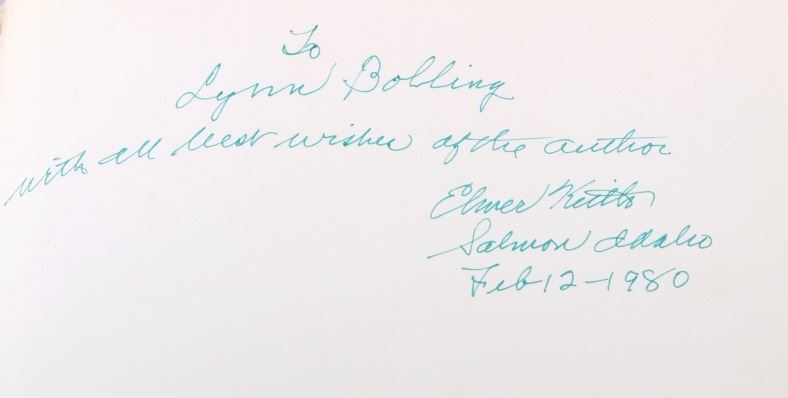 To
Lynn Bolling
with all best wishes of the author
Elmer Keith
Salmon Idaho
Feb 12-1980